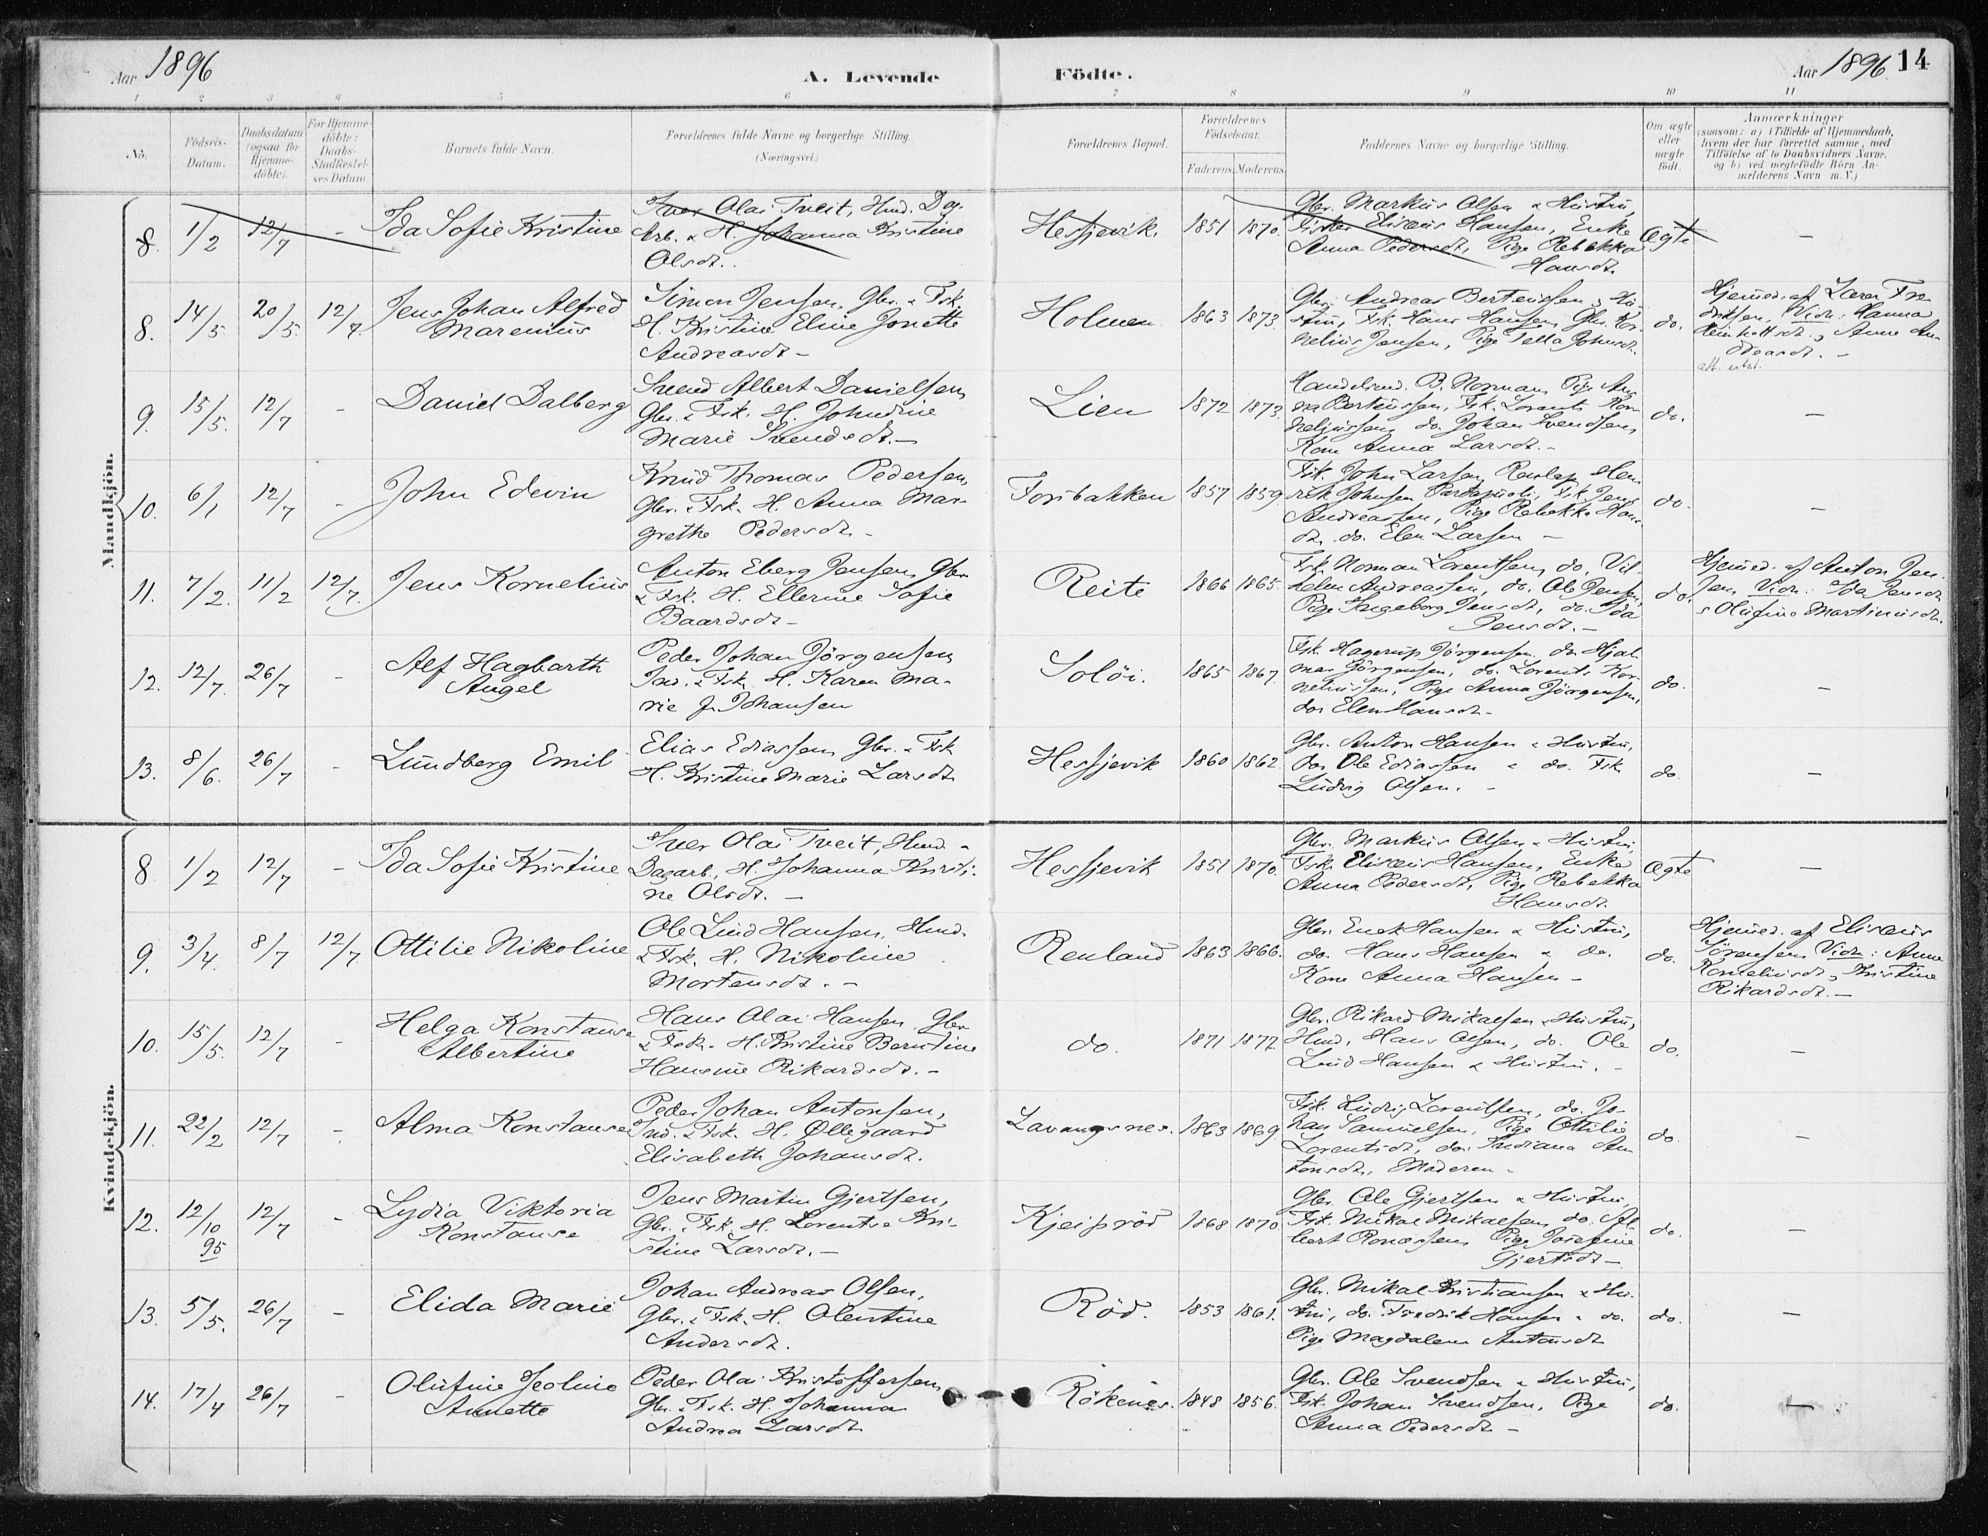 Aar 1896
A. Levende Födte.
Aar 1896
14
1 2 3 4 5 6 7 8 9 10 11
No.
Födsels-Datum.
Daabsdatum (ogsaa for Hjemme-döbte).
For Hjemme-döbte: Daabs-Stadfæstelses Datum.
Barnets fulde Navn.
Forældrenes fulde Navne og borgerlige Stilling.
(Næringsvei.)
Forældrenes Bopæl.
Forældrenes Födselsaar.
Faderens. Moderens.
Faddernes Navne og borgerlige Stilling.
Om ægte eller uægte födt.
Anmærkninger
(saasom: a) i Tilfælde af Hjemmedaab, hvem der har forrettet samme, med Tilföielse af to Daabsvidners Navne, og b) ved uægtefödte Börn Anmelderens Navn m. V.)
Mandkjön.
8. 1/2 12/7 - Ida Sofie Kristine
Iver Olai Tveit, Hmd. Dag
Arb. & H. Johanna Kristine
Olsdt.
Hessjevik. 1851 1870.
Gbr. Markus Olsen & Hustru,
Fisker Elisæus Hansen, Enke
Anna Pedersdt, Pige Rebekka
Hansdt.
Ægte —
8. 14/5 20/5. 12/7. Jens Johan Alfred
Marenius
Simon Jensen, Gbr. & Fsk.
H. Kristine Eline Jonette
Andreasdt —
Holmen. 1863 1873.
Gbr. Andreas Bertenssen & Hu-
stru, Fsk. Hans Hansen, Gbr. Kor-
nelius Jensen, Pige Tella Johnsdt.
do.
Hjemmed. af Lærer Fre-
driksen, Vidn: Hanna
Reinholtsdt, & Anne An-
dreasdt. —
att. utst.
9. 15/5. 12/7 - Daniel Dalberg
Svend Albert Danielsen
Gbr. & Fsk. H. Johndine
Marie Svendsdt. —
Lien 1872 1873.
Handelsmd. B. Norman, Pige An-
na Berteussen, Fsk. Lorents Kor-
neliussen, do Johan Svendsen,
Kone Anna Larsdt. —
do. —
10. 6/1 12/7 - John Edevin
Knud Thomas Pedersen
Gbr. & Fsk. H. Anna Mar-
grethe Pedersdt. —
Forsbakken 1857 1859.
Fsk. John Larsen Renland, Hen-
rik Johnsen, Fsk. Jens
Andreassen, Pige Rebekka Hans-
dt. do. Elen Larsen —
do. —
11. 7/2. 11/2 12/7. Jens Kornelius
Anton Eberg Jensen, Gbr.
& Fsk. H. Ellerine Sofie
Baardsdt —
Reite 1866 1865.
Fsk. Norman Lorentsen, do. Vil-
helm Andreassen, do. Ole Jensen,
Pige Ingeborg Jensdt, do. Ida
Jensdt. —
do.
Hjemmed. af Anton Jen-
sen, Vidn: Ida Jensdt
& Olufine Martinusdt.
12. 12/7. 26/7 - Alf Hagbarth
Angel
Peder Johan Jörgensen
Ind. & Fsk. H. Karen Ma-
rie f. Johansen
Solöi. 1865 1867.
Fsk. Hagerup Jörgensen, do. Hjal-
mar Jörgensen, do. Lorents Kor-
neliussen, Pige Anna Jörgensen,
do. Elen Hansdt —
do. —
13. 8/6. 26/7 - Lundberg Emil
Elias Ediassen, Gbr. & Fsk
H. Kristine Marie Larsdt.
Hessjevik 1860 1862.
Gbr. Anton Hansen & Hustru,
do. Ole Ediassen & do. Fsk
Ludvig Olsen. —
do. —
Kvindekjön.
8 1/2 12/7 - Ida Sofie Kristine
Iver Olai Tveit, Hmd. &
Dagarb. H. Johanna Kristi-
ne Olsdt. —
Hessjevik 1851 1870.
Gbr. Markus Olsen & Hustru,
Fsk. Elisæus Hansen, Enke
Anna Pedersdt, Pige Rebekka
Hansdt.
Ægte —
9. 3/4. 8/7 12/7 Ottilie Nikoline
Ole Lind Hansen, Hmd.
& Fsk. H. Nikoline
Mortensdt. —
Renland 1863 1866.
Gbr. Enok Hansen & Hustru,
do. Hans Hansen & do.
Kone Anna Hansen —
do.
Hjemmed. af Elisæus
Sörensen, Vidn: Anne
Korneliusdt, & Kristine
Rikardsdt. —
10. 15/5. 12/7 - Helga Konstanse
Albertine
Hans Olai Hansen, Gbr.
& Fsk. H. Kristine Berntine
Hansine Rikardsdt. —
do. 1871 1877.
Gbr. Rikard Mikalsen & Hustru,
Hmd. Hans Olsen, do. Ole
Lind Hansen & Hustru. —
do. —
11. 22/2 12/7 - Alma Konstanse
Peder Johan Antonsen,
Ind. & Fsk. H. Øllegaard
Elisabeth Johansdt.
Lavangsnes. 1863 1869
Fsk. Ludvig Lorentsen, do. Jo-
han Samuelsen, Pige Ottilie
Lorentsdt, do. Indiana An-
tonsdt, Moderen —
do. —
12. 12/10 95 12/7 - Lydia Viktoria
Konstanse
Jens Martin Gjertsen,
Gbr. & Fsk. H. Lorentse Kri-
stine Larsdt. —
Kjeipröd 1868 1870.
Gbr. Ole Gjertsen & Hustru
Fsk. Mikal Mikalsen, do. Al-
bert Rønæssen, Pige Josefine
Gjertsdt —
do. —
13. 5/5. 26/7 - Elida Marie
Johan Andreas Olsen,
Gbr. & Fsk. H. Olentine
Andersdt.
Röd. 1853 1861.
Gbr. Mikal Kristiansen & Hu-
stru, do. Fredrik Hansen & do.
Pige Magdalena Antonsdt
do. —
14. 17/4 26/7 - Olufine Jeoline
Annette
Peder Olai Kristoffersen
Gbr. & Fsk. H. Johanna
Andrea Larsdt
Rökenes. 1848 1856.
Gbr. Ole Svendsen & Hustru,
Fsk. Johan Svendsen, Pige
Anna Pedersdt —
do. —